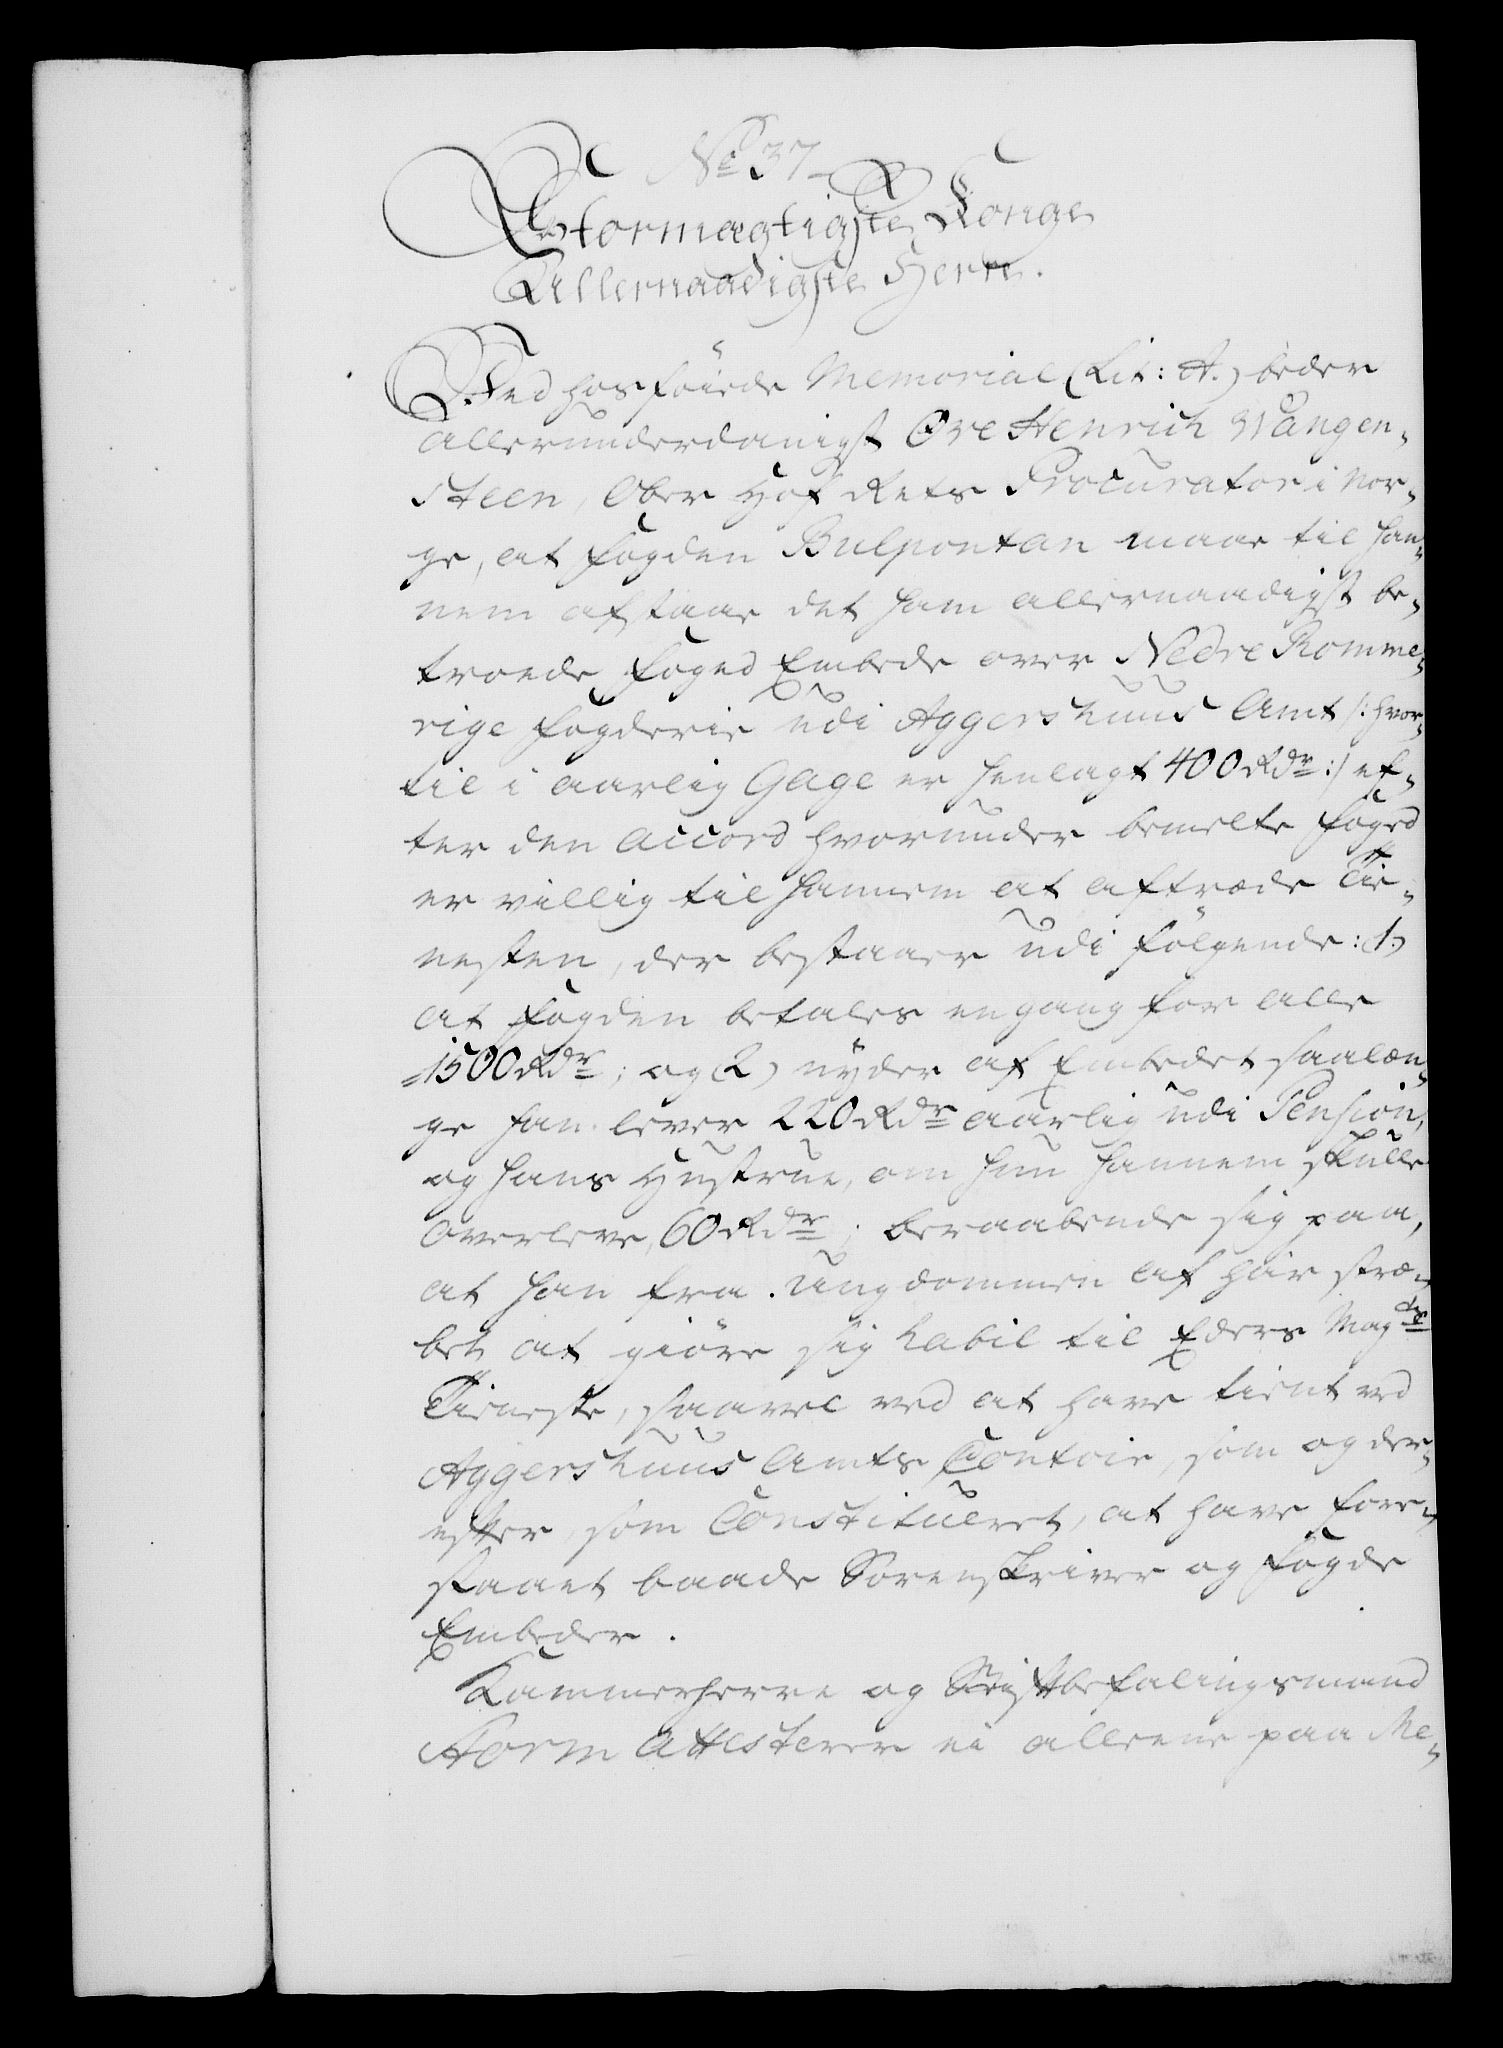 No 37
Stormægtigste Konge
Allernaadigste Herre.
Ved hosføiede Memorial (Lit: A.) beder
allerunderdanigst Ove Henrich Wangen-
steen, Ober Hof Rets Procurator i Nor-
ge, at Fogden Bulpontan maae til han-
nem afstaae det ham allernaadigst be-
troede Foged Embede over Nedre Romme-
rige Fogderie udi Aggershuus Amt /: hvor-
til i aarlig Gage er henlagt 400 Rdr :/ ef-
ter den Accord hvorunder bemelte Foged
er villig til hannem at aftræde Tie-
nesten, der bestaaer udi følgende: 1.)
at Fogden betales engang for alle
1500 Rdr; og 2) nyder af Embedet saalæn-
ge han lever 220 Rdr aarlig udi Pension,
og hans Hustrue, om hun hannem skulle
overleve, 60 Rdr; beraabende sig paa,
at han fra Ungdommen af har stræ-
bet at giøre sig habil til Eders Mayts
Tieneste, saavel ved at have tient ved
Aggershuus Amts Contoir, som og der-
efter, som Constitueret, at have fore-
staaet baade Sorenskriver og Fogde
Embeder.
Kammerherre og Stiftbefalingsmand
Storm attesterer ei alleene paa Me-